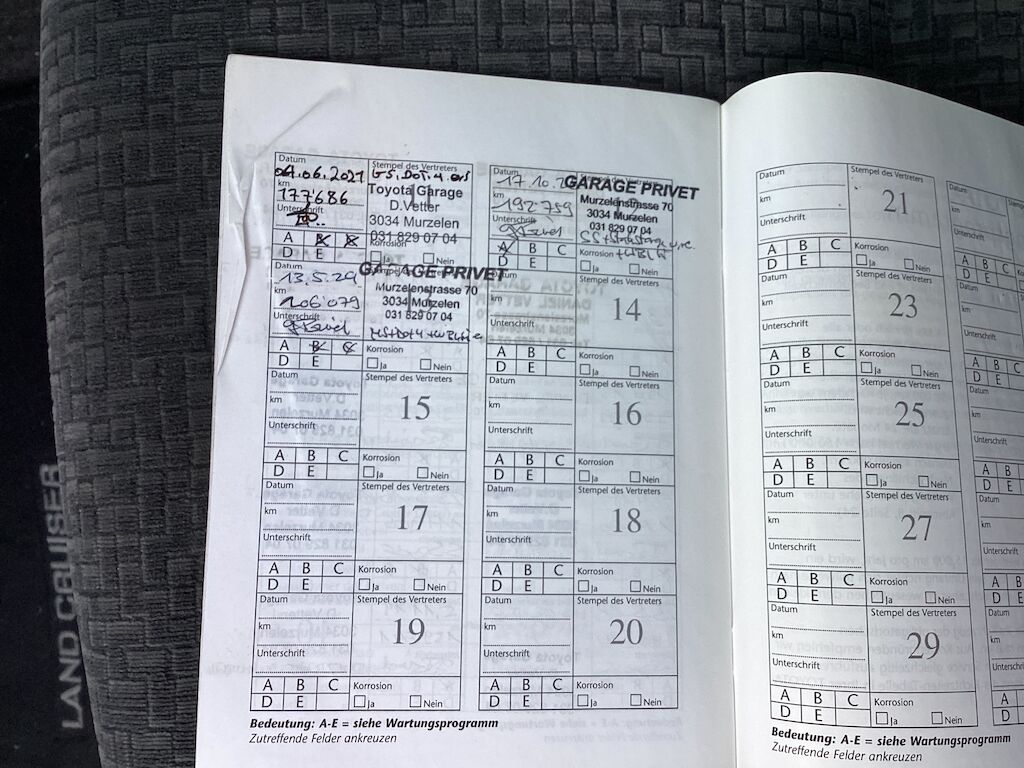 Datum
Stempel des Vertreters
04.06.2021
km
177'686
Toyota Garage
D.Vetter
3034 Murzelen
031 829 07 04
Unterschrift
A B C
D E
Korrosion
Ja Nein
Datum
17.10.
km
192'759
GARAGE PRIVET
Murzelenstrasse 70
3034 Murzelen
031 829 07 04
Unterschrift
A B C
D E
Korrosion
Ja Nein
Datum
13.5.24
km
206'079
GARAGE PRIVET
Murzelenstrasse 70
3034 Murzelen
031 829 07 04
Unterschrift
A B C
D E
Korrosion
Ja Nein
Stempel des Vertreters
km
14
Unterschrift
A B C
D E
Korrosion
Ja Nein
Datum
Stempel des Vertreters
km
15
Unterschrift
A B C
D E
Korrosion
Ja Nein
Datum
Stempel des Vertreters
km
16
Unterschrift
A B C
D E
Korrosion
Ja Nein
Datum
Stempel des Vertreters
km
17
Unterschrift
A B C
D E
Korrosion
Ja Nein
Datum
Stempel des Vertreters
km
18
Unterschrift
A B C
D E
Korrosion
Ja Nein
Datum
Stempel des Vertreters
km
19
Unterschrift
A B C
D E
Korrosion
Ja Nein
Datum
Stempel des Vertreters
km
20
Unterschrift
A B C
D E
Korrosion
Ja Nein
Bedeutung: A-E = siehe Wartungsprogramm
Zutreffende Felder ankreuzen
Datum
Stempel des Vertreters
km
21
Unterschrift
A B C
D E
Korrosion
Ja Nein
Datum
Stempel des Vertreters
km
23
Unterschrift
A B C
D E
Korrosion
Ja Nein
Datum
Stempel des Vertreters
km
25
Unterschrift
A B C
D E
Korrosion
Ja Nein
Datum
Stempel des Vertreters
km
27
Unterschrift
A B C
D E
Korrosion
Ja Nein
Datum
Stempel des Vertreters
km
29
Unterschrift
A B C
D E
Korrosion
Ja Nein
Datum
km
Unterschrift
A B
D E
Datum
km
Unterschrift
A B
D E
Datum
km
Unterschrift
A B
D E
Datum
km
Unterschrift
A B
D E
Datum
km
Unterschrift
A B
D E
Bedeutung: A-E = siehe Wartungsprogramm
Zutreffende Felder ankreuzen
LAND CRUISER